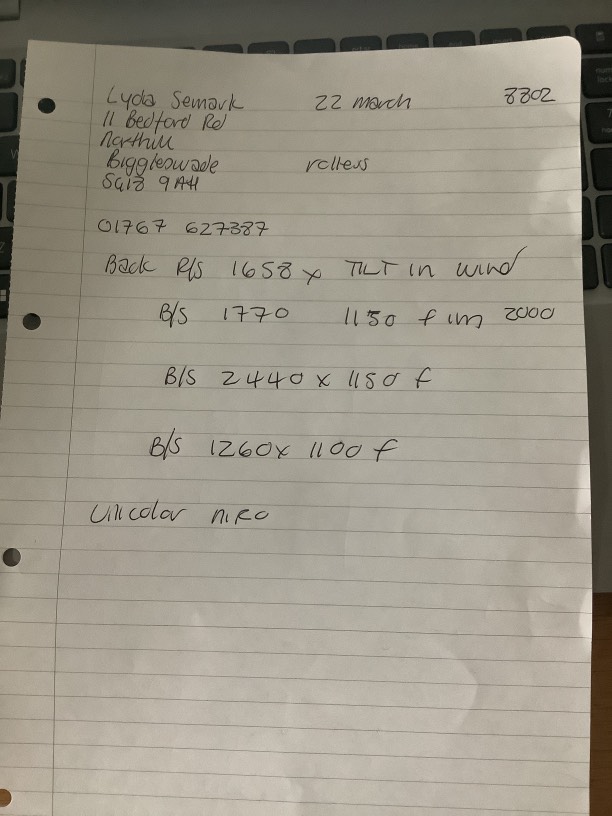 Lyda Semark 22 march 8802
11 Bedford Rd
northill
Biggleswade rollers
SG18 9AH
01767 627387
Back R/S 1658 x TILT in wind
B/S 1770 1150 f im 2000
B/S 2440 x 1150 f
B/S 1260 x 1100 f
Unicolor